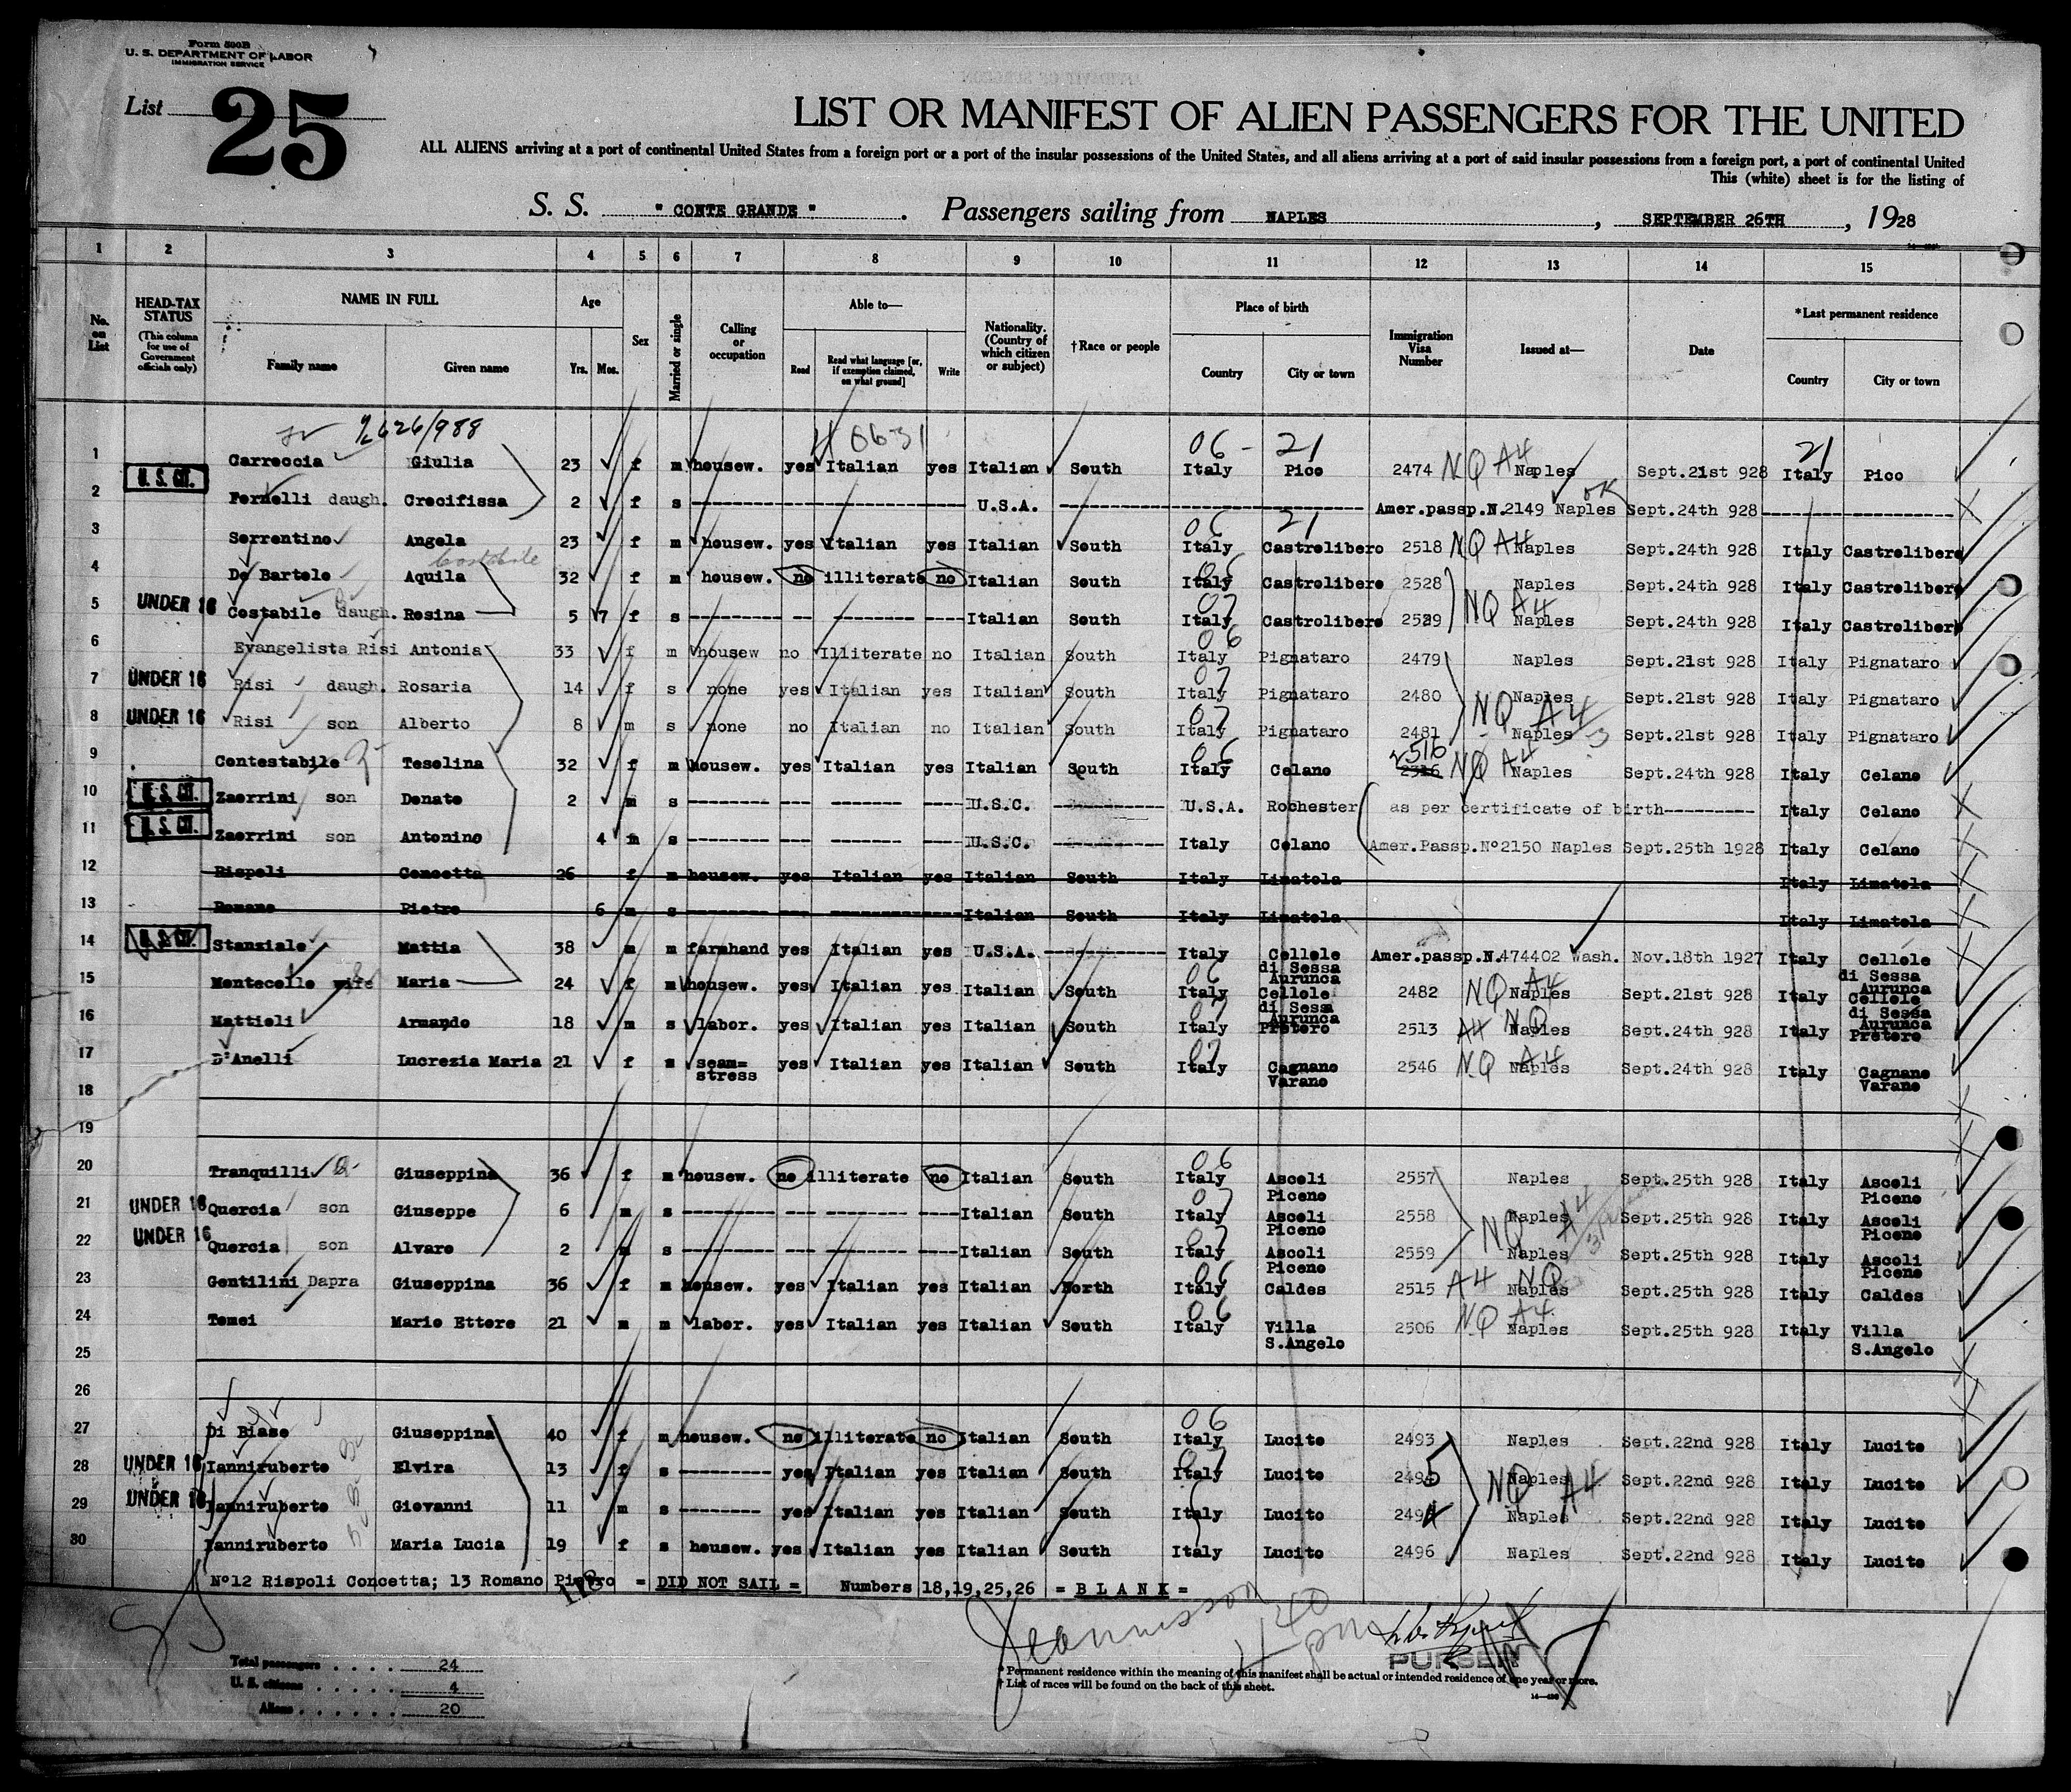 Form 500B
U. S. DEPARTMENT OF LABOR
IMMIGRATION SERVICE
List 25
LIST OR MANIFEST OF ALIEN PASSENGERS FOR THE UNITED
ALL ALIENS arriving at a port of continental United States from a foreign port or a port of the insular possessions of the United States, and all aliens arriving at a port of said insular possessions from a foreign port, a port of continental United
This (white) sheet is for the listing of
S. S. " CONTE GRANDE " . Passengers sailing from NAPLES , SEPTEMBER 26TH , 1928
1 2 3 4 5 6 7 8 9 10 11 12 13 14 15
No. on List
HEAD-TAX STATUS (This column for use of Government officials only)
NAME IN FULL Family name Given name
Age Yrs. Mos.
Sex
Married or single
Calling or occupation
Able to— Read Read what language [or, if exemption claimed, on what ground] Write
Nationality. (Country of which citizen or subject)
†Race or people
Place of birth Country City or town
Immigration Visa Number
Issued at—
Date
*Last permanent residence Country City or town
06 - 21 21
1 Carroccia Giulia 23 f m housew. yes Italian yes Italian South Italy Pico 2474 NQ A4 Naples Sept.21st 928 Italy Pico
2 U. S. CIT. Fornelli daugh. Crocifissa 2 f s U.S.A. Amer.passp.N.2149 Naples OK Sept.24th 928
06 21
3 Sorrentino Angela 23 f m housew. yes Italian yes Italian South Italy Castrolibero 2518 NQ A4 Naples Sept.24th 928 Italy Castrolibero
Costabile
4 De Bartolo Aquila 32 f m housew. no illiterate no Italian South Italy Castrolibero 2528 Naples Sept.24th 928 Italy Castrolibero
5 UNDER 16 Costabile daugh. Rosina 5 7 f s Italian South Italy Castrolibero 2529 NQ A4 Naples Sept.24th 928 Italy Castrolibero
6 Evangelista Risi Antonia 33 f m housew no Illiterate no Italian South 06 Italy Pignataro 2479 Naples Sept.21st 928 Italy Pignataro
7 UNDER 16 Risi daugh. Rosaria 14 f s none yes Italian yes Italian South 07 Italy Pignataro 2480 Naples Sept.21st 928 Italy Pignataro
8 UNDER 16 Risi son Alberto 8 m s none no Italian no Italian South 07 Italy Pignataro 2481 NQ A4 Naples Sept.21st 928 Italy Pignataro
9 Contestabile Tesolina 32 f m housew. yes Italian yes Italian South 06 Italy Celano 2516 NQ A4 Naples Sept.24th 928 Italy Celano
10 U. S. CIT. Zaorrini son Donato 2 m s U.S.C. U.S.A. Rochester as per certificate of birth Italy Celano
11 U. S. CIT. Zaorrini son Antonino 4 m s U.S.C. Italy Celano Amer.Passp.Nº2150 Naples Sept.25th 1928 Italy Celano
12 Rispoli Concetta 26 f m housew. yes Italian yes Italian South Italy Limatola Italy Limatola
13 Romano Pietro 6 m s Italian South Italy Limatola Italy Limatola
14 U. S. CIT. Stanziale Mattia 38 m m farmhand yes Italian yes U.S.A. Italy Cellole di Sessa Aurunca Amer.passp.N.474402 Wash. Nov.18th 1927 Italy Cellole di Sessa Aurunca
15 Montecello wife Maria 24 f m housew. yes Italian yes Italian South 06 Italy Cellole di Sessa Aurunca 2482 NQ A4 Naples Sept.21st 928 Italy Cellole di Sessa Aurunca
16 Mattioli Armando 18 m s labor. yes Italian yes Italian South Italy Pretoro 2513 A4 NQ Naples Sept.24th 928 Italy Pretoro
17 D'Anelli Lucrezia Maria 21 f s seam=stress yes Italian yes Italian South 07 Italy Cagnano Varano 2546 NQ A4 Naples Sept.24th 928 Italy Cagnano Varano
18
19
20 Tranquilli Giuseppina 36 f m housew. no illiterate no Italian South 06 Italy Ascoli Piceno 2557 Naples Sept.25th 928 Italy Ascoli Piceno
21 UNDER 16 Quercia son Giuseppe 6 m s Italian South 07 Italy Ascoli Piceno 2558 Naples Sept.25th 928 Italy Ascoli Piceno
22 UNDER 16 Quercia son Alvaro 2 m s Italian South 07 Italy Ascoli Piceno 2559 NQ A4 Naples Sept.25th 928 Italy Ascoli Piceno
23 Gentilini Dapra Giuseppina 36 f m housew. yes Italian yes Italian North 06 Italy Caldes 2515 A4 NQ Naples Sept.25th 928 Italy Caldes
24 Tomei Mario Ettore 21 m m labor. yes Italian yes Italian South 06 Italy Villa S.Angelo 2506 NQ A4 Naples Sept.25th 928 Italy Villa S.Angelo
25
26
27 Di Biase Giuseppina 40 f m housew. no illiterate no Italian South 06 Italy Lucito 2493 Naples Sept.22nd 928 Italy Lucito
28 UNDER 16 Ianniruberto Elvira 13 f s yes Italian yes Italian South 07 Italy Lucito 2495 NQ A4 Naples Sept.22nd 928 Italy Lucito
29 UNDER 16 Ianniruberto Giovanni 11 m s yes Italian yes Italian South Italy Lucito 2494 Naples Sept.22nd 928 Italy Lucito
30 Ianniruberto Maria Lucia 19 f s housew. yes Italian yes Italian South Italy Lucito 2496 Naples Sept.22nd 928 Italy Lucito
Nº12 Rispoli Concetta; 13 Romano Pietro = DID NOT SAIL = Numbers 18,19,25,26 = B L A N K =
Total passengers . . . . 24
U. S. citizens . . . . . 4
Aliens . . . . . . 20
PURSER
* Permanent residence within the meaning of this manifest shall be actual or intended residence of one year or more.
† List of races will be found on the back of this sheet.